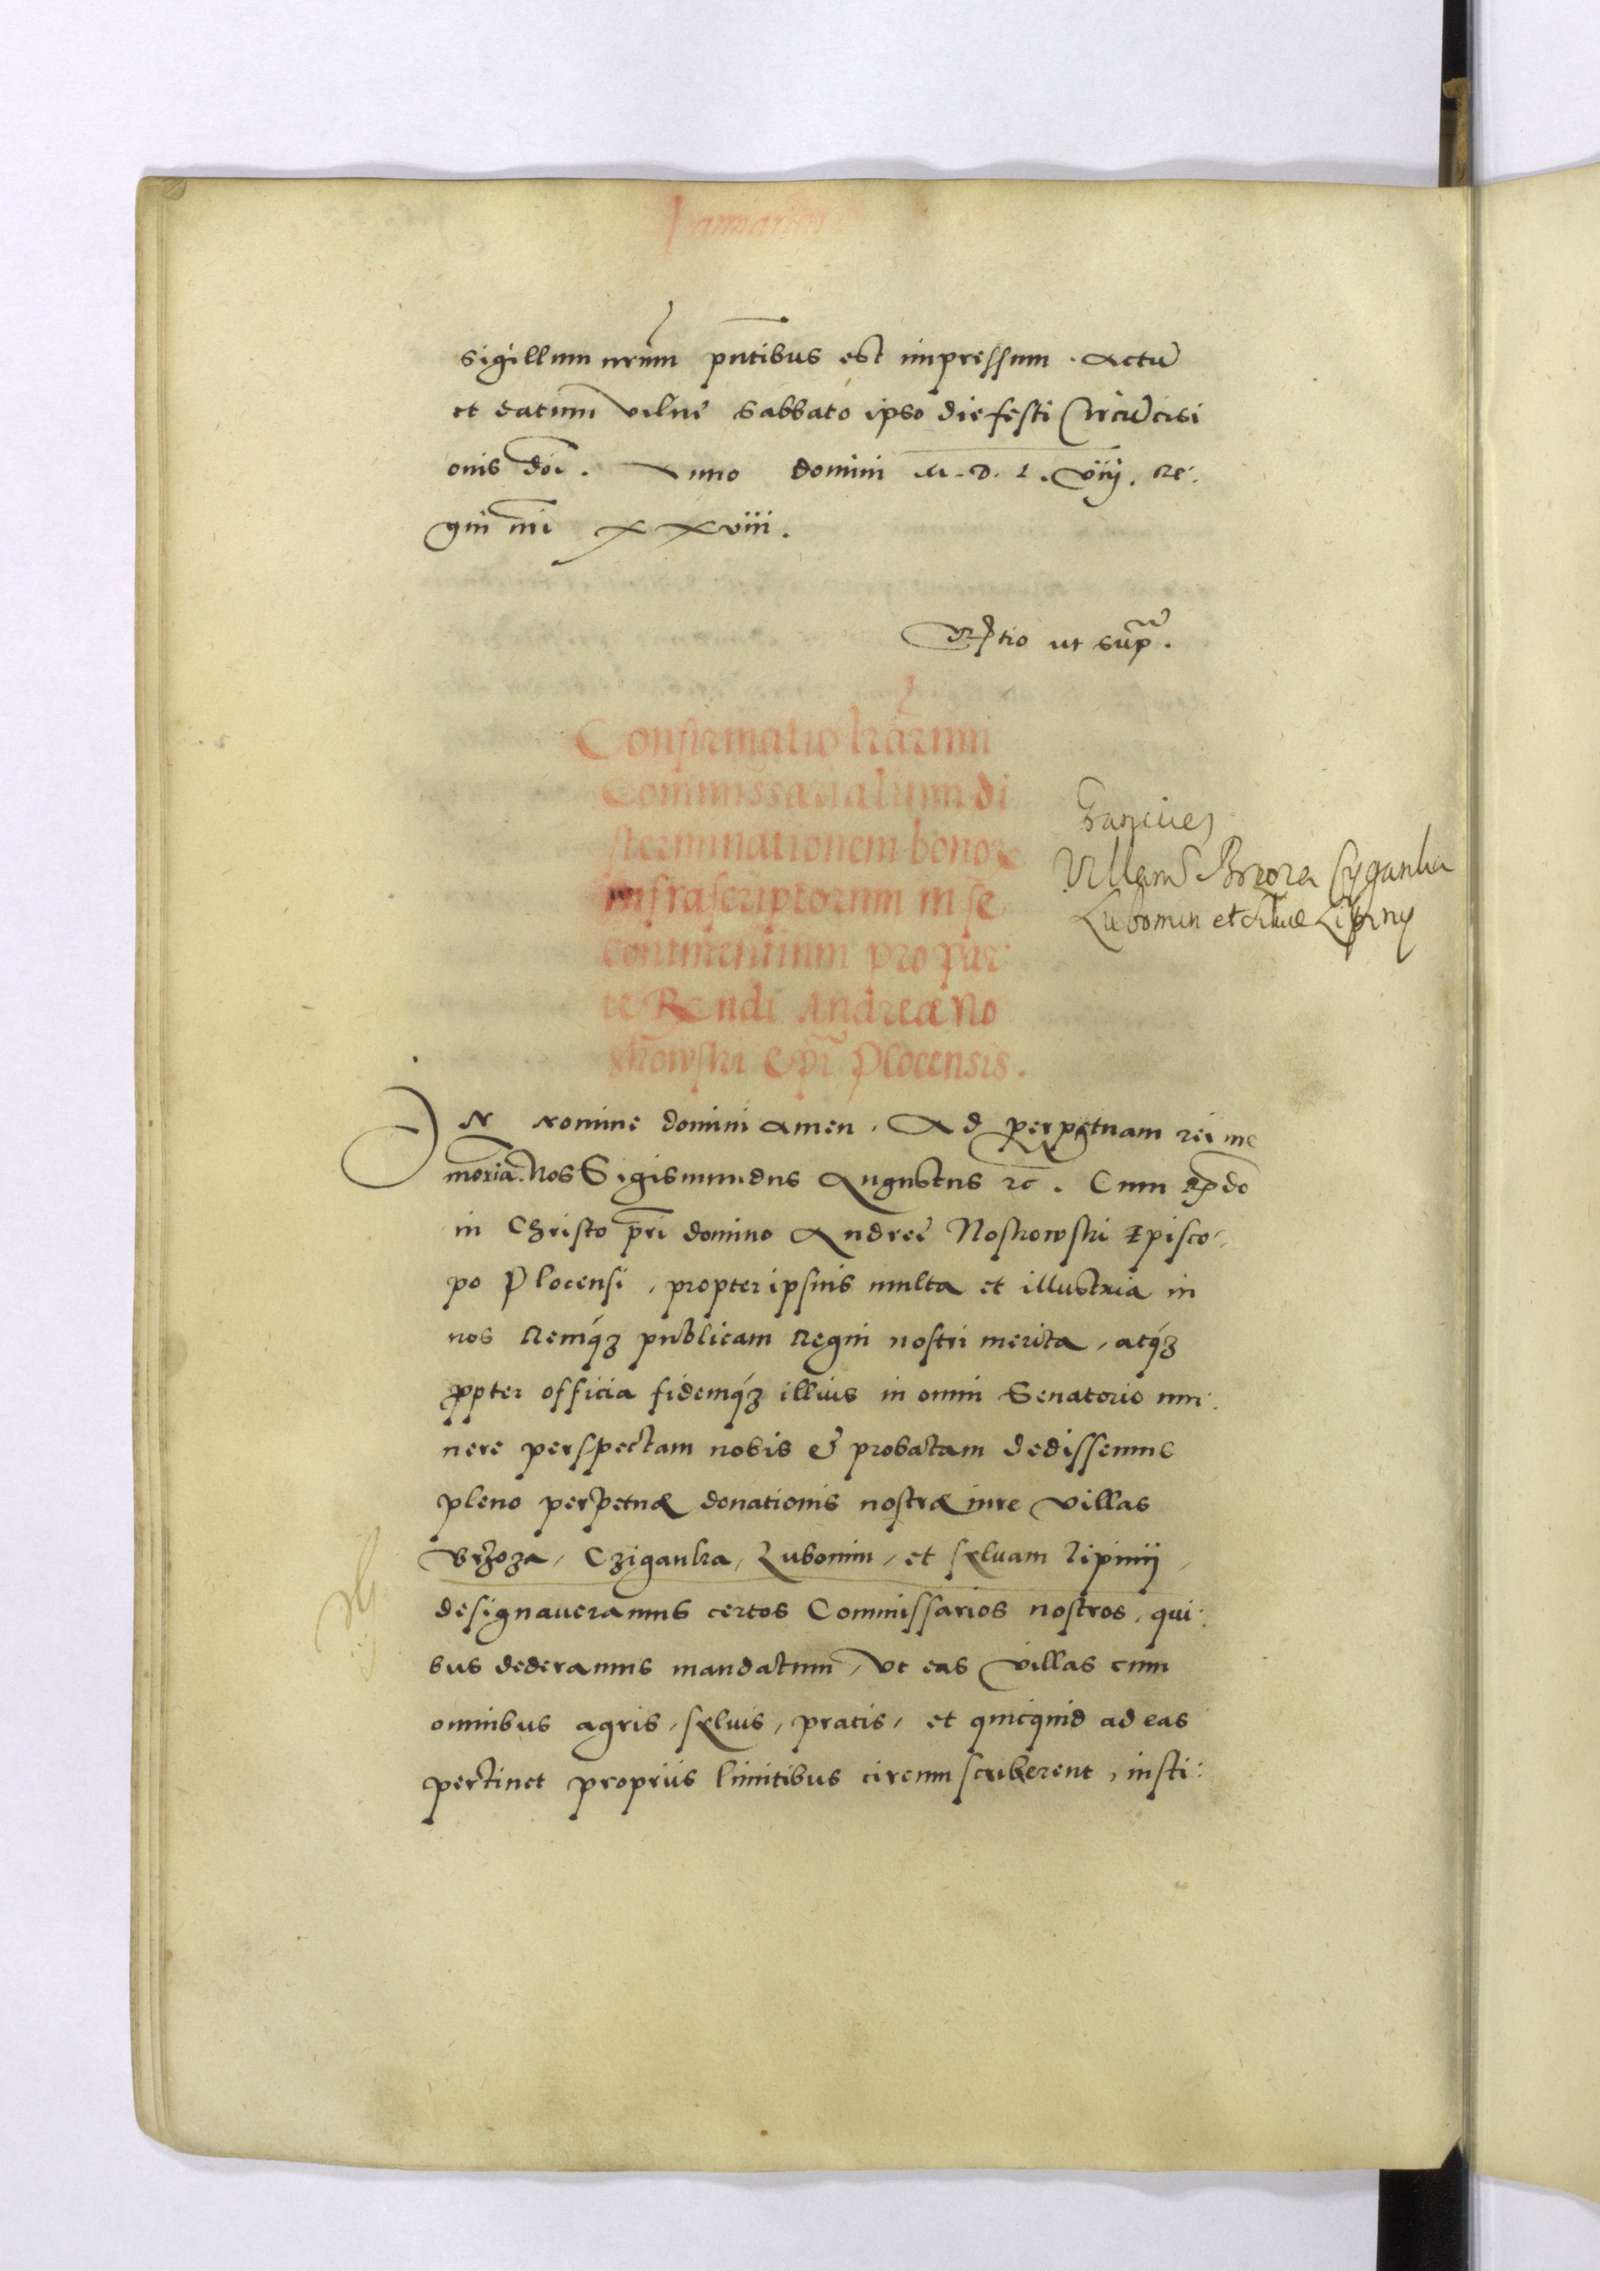 sigillum nrum pntibus est impressum. Actu
et datum vilne Sabbato ipso die festi Circucisi
onis doi. Anno domini M.D.L.viij. Re:
gni nri XXviii.
Rtio ut supr.
Confirmatio lrarum
Commissarialium di
sterminationem bonor
infrascriptorum in se
continentium pro par
te Rendi Andreæ No
skowski Epi Plocensis.
Granicies
Villarum Brzoza Cyganka
Lubomin et Silue Lipiny
IN Nomine domini amen. Ad perpetuam rei me
moria. Nos Sigismundus Augustus rc. Cum Rpdo
in Christo pri domino Andreæ Noskowski Episco-
po Plocensi, propter ipsius multa et illustria in
nos Remq3 publicam Regni nostri merita, atq3
ppter officia fidemq3 illius in omni Senatorio mu:
nere perspectam nobis & probatam dedissemus
pleno perpetuæ donationis nostræ iure villas
Brzoza, Cziganka, Lubomin, et sylvam Lipinij,
designaueramus certos Commissarios nostros, qui:
bus dederamus mandatum, vt eas villas cum
omnibus agris, syluis, pratis, et quicquid ad eas
pertinet propriis limitibus circumscriberent, insti: